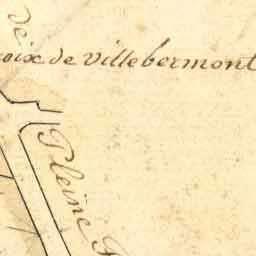 de
oix de villebermont
Pleine